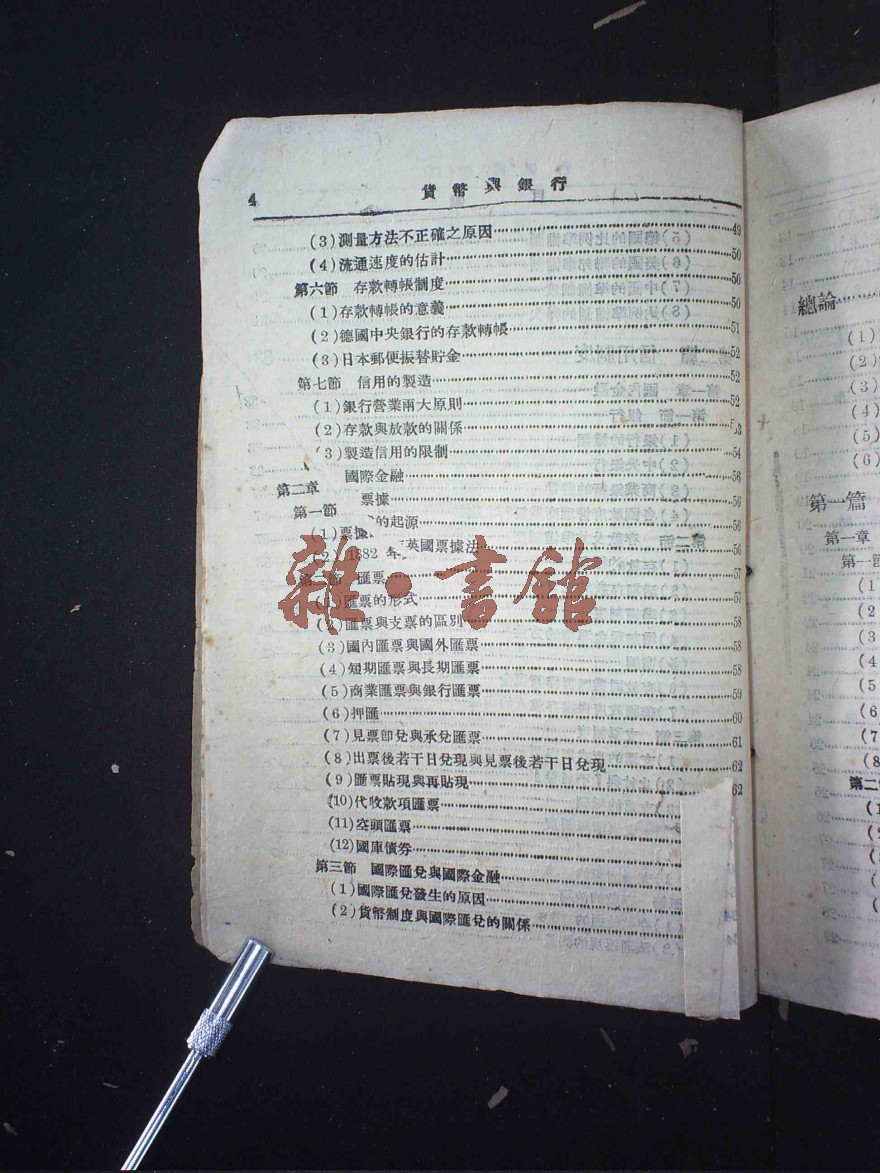 4
貨幣與銀行
(3)測量方法不正確之原因……49
(4)流通速度的估計……50
第六節 存款轉帳制度……50
(1)存款轉帳的意義……50
(2)德國中央銀行的存款轉帳……51
(3)日本郵便振替貯金……52
第七節 信用的製造……52
(1)銀行營業兩大原則……52
(2)存款與放款的關係……53
(3)製造信用的限制……54
第二章 國際金融……56
第一節 票據……56
(1)票據的起源……56
(2)1882年英國票據法……56
匯票……57
(1)匯票的形式……57
(2)匯票與支票的區別……58
(3)國內匯票與國外匯票……58
(4)短期匯票與長期匯票……58
(5)商業匯票與銀行匯票……59
(6)押匯……60
(7)見票即兌與承兌匯票……61
(8)出票後若干日兌現與見票後若干日兌現……62
(9)匯票貼現與再貼現……62
(10)代收款項匯票……
(11)空頭匯票……
(12)國庫債券……
第三節 國際匯兌與國際金融……
(1)國際匯兌發生的原因……
(2)貨幣制度與國際匯兌的關係……
雜·書館
總論……
(1)
(2)
(3)
(4)
(5)
(6)
第一篇
第一章
第一節
(1
(2
(3
(4
(5
(6
(7
(8
第二
(1